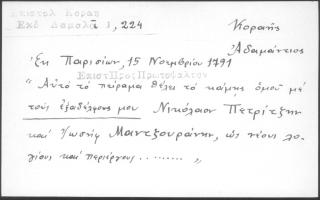 Επιστολ Κοραη
Εκδ Δαμαλᾶ Ι, 224
Κοραῆς
Ἀδαμάντιος
Ἐκ Παρισίων, 15 Νοεμβρίου 1791
ΕπιστΐΠρος Πρωτοψαλτην
"Αὐτὸ τὸ πείραμα θέλει τὸ κάμῃς ὁμοῦ μέ
τοὺς ἐξαδέλφους μου Νικόλαον Πετρίτζην
καί Ἰωσήφ Μαντζουράνην, ὡς νέους λο-
γίους καί περιέργους ......... „